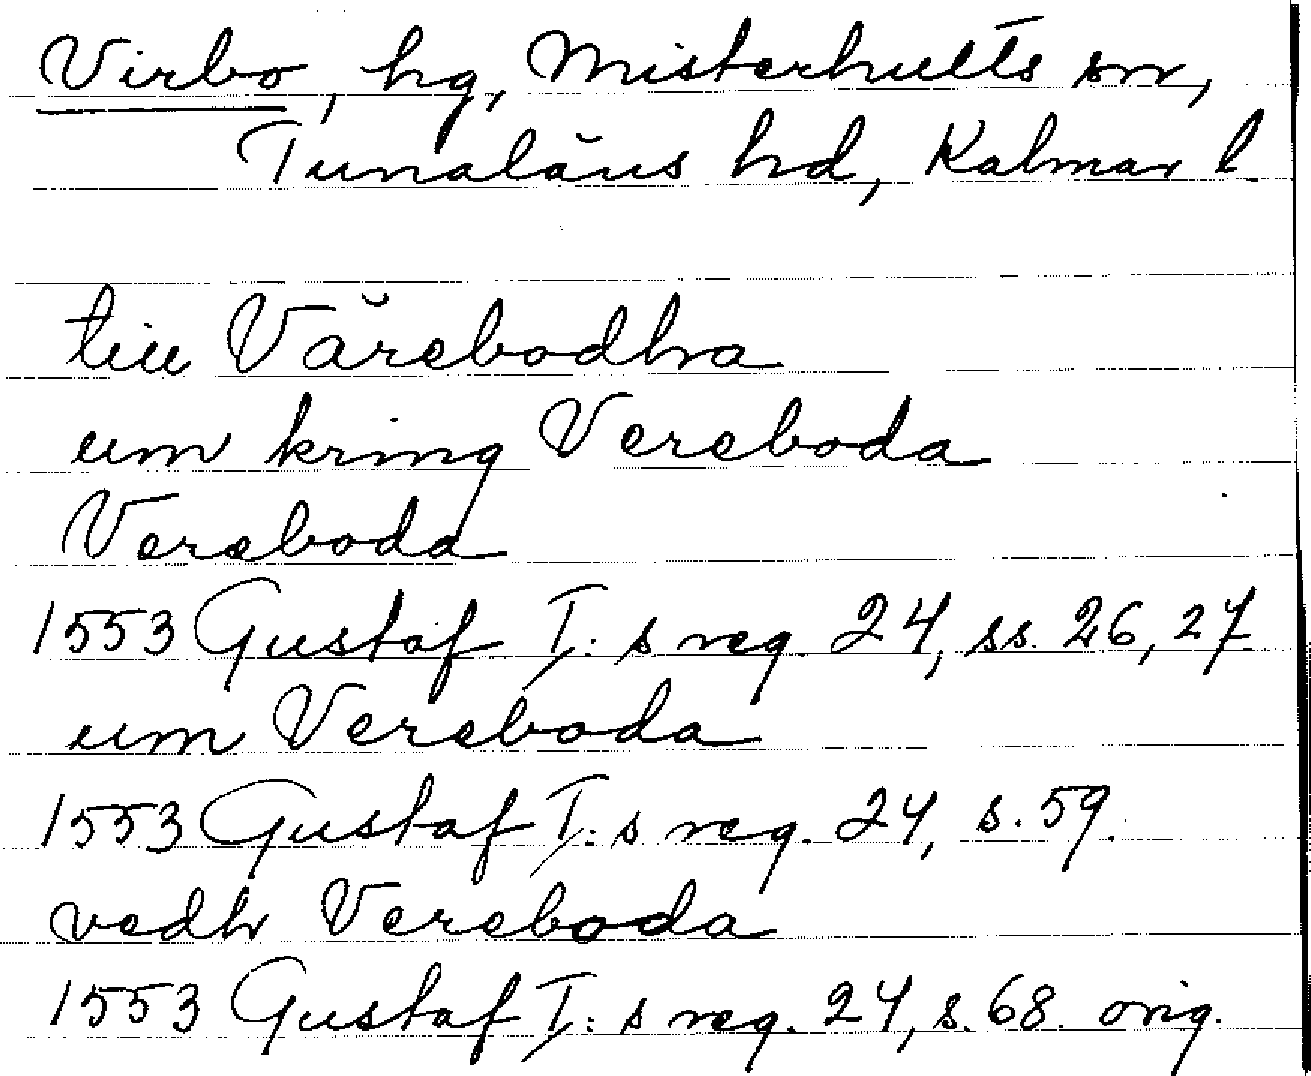 Virbo, hg, Misterhults sn,
Tunaläns hd, Kalmar l.
till Värebodha
um kring Vereboda
Vereboda
1553 Gustaf I:s reg. 24, ss. 26, 27.
um Vereboda
1553 Gustaf I:s reg. 24, s. 59.
vedh Vereboda
1553 Gustaf I:s reg. 24, s. 68. orig.